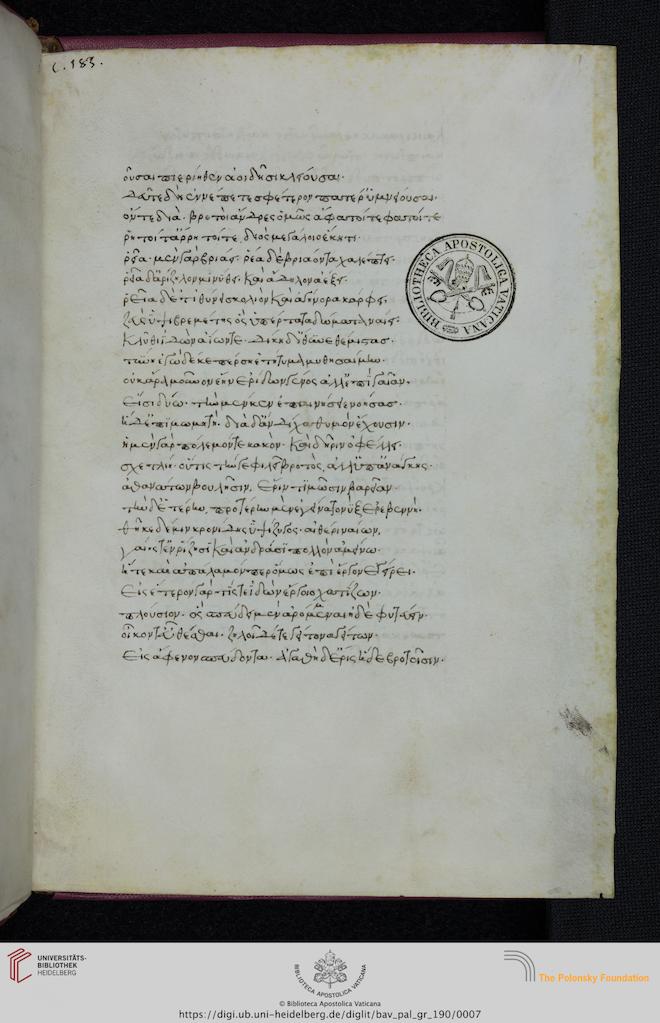 C. 183.
οῦσαι πιερίηθεν ἀοιδῆσι κλείουσαι.
Δεῦτε δὴ ἐννέπετε σφέτερον πατέρ ὑμνείουσαι.
ὅντε διὰ βροτοὶ ἄνδρες ὁμῶς ἄφατοί τε φατοί τε
ῥητοί τ' ἄρρητοί τε διὸς μεγάλοιο ἕκητι.
ῥέα μὲν γὰρ βριάει. ῥέα δὲ βριάοντα χαλέπτει.
ῥεῖα δ' ἀρίζηλον μινύθει. καὶ ἄδηλον ἀέξει.
ῥεῖα δέ τ' ἰθύνει σκολιὸν καὶ ἀγήνορα κάρφει.
Ζεὺς ὑψιβρεμέτης ὃς ὑπέρτατα δώματα ναίει.
Κλῦθι ἰδὼν ἀΐων τε. δίκῃ δ' ἴθυνε θέμιστας
τύνη ἐγὼ δέ κε πέρσῃ ἐτήτυμα μυθησαίμην.
οὐκ ἄρα μοῦνον ἔην ἐρίδων γένος ἀλλ' ἐπὶ γαῖαν.
Εἰσὶ δύω. τὴν μέν κεν ἐπαινήσειε νοήσας.
ἡ δ' ἐπιμωμητή. διὰ δ' ἄνδιχα θυμὸν ἔχουσιν.
ἡ μὲν γὰρ πόλεμόν τε κακὸν. καὶ δῆριν ὀφέλλει.
σχετλίη. οὔτις τήν γε φιλεῖ βροτὸς, ἀλλ' ὑπ' ἀνάγκης.
ἀθανάτων βουλῇσιν, Ἔριν τιμῶσιν βαρεῖαν.
τὴν δ' ἑτέρην, προτέρην μὲν ἐγείνατο νὺξ ἐρεβεννή.
θῆκε δέ μιν κρονίδης ὑψίζυγος. αἰθέρι ναίων,
γαίης τ' ἐν ῥίζῃσι καὶ ἀνδράσι πολλὸν ἀμείνω.
ἥτε καὶ ἀπάλαμόν περ ὅμως ἐπὶ ἔργον ἐγείρει.
Εἰς ἕτερον γάρ τίς τε ἰδὼν ἔργοιο χατίζων.
πλούσιον. ὃς σπεύδει μὲν ἀρόμμεναι ἠδὲ φυτεύειν.
οἶκόν τ' εὖ θέσθαι. ζηλοῖ δέ τε γείτονα γείτων
Εἰς ἄφενον σπεύδοντα. ἀγαθὴ δ' ἔρις ἥδε βροτοῖσιν.
BIBLIOTHECA APOSTOLICA VATICANA
UNIVERSITÄTS-
BIBLIOTHEK
HEIDELBERG
BIBLIOTECA APOSTOLICA VATICANA
The Polonsky Foundation
© Biblioteca Apostolica Vaticana
https://digi.ub.uni-heidelberg.de/diglit/bav_pal_gr_190/0007